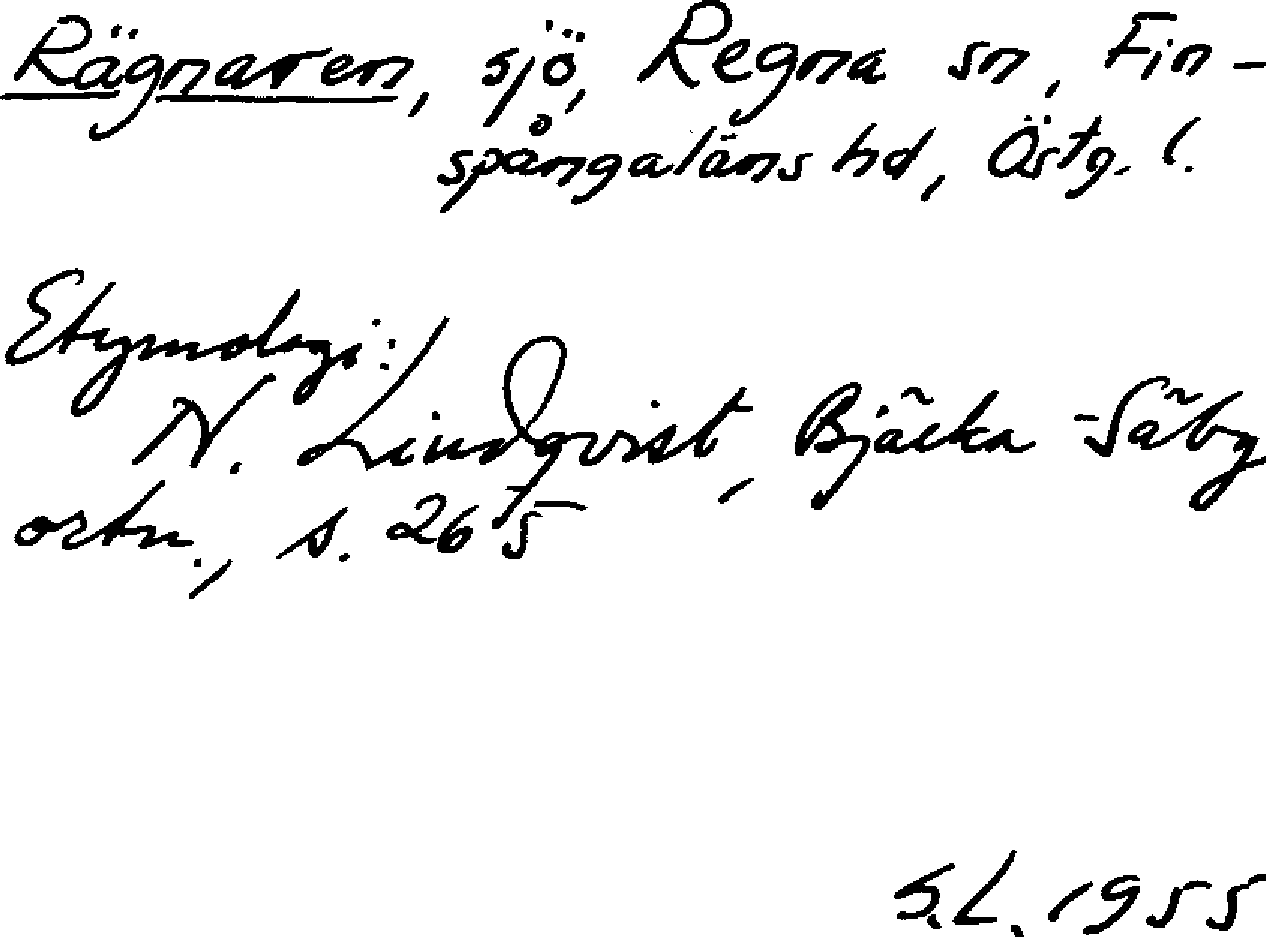 Rägnaren, sjö, Regna sn, Fin-
spångaläns hd, Östg. l.
Etymologi:
N. Lindqvist, Bjärka-Säby
ortn., s. 265
S.L. 1955